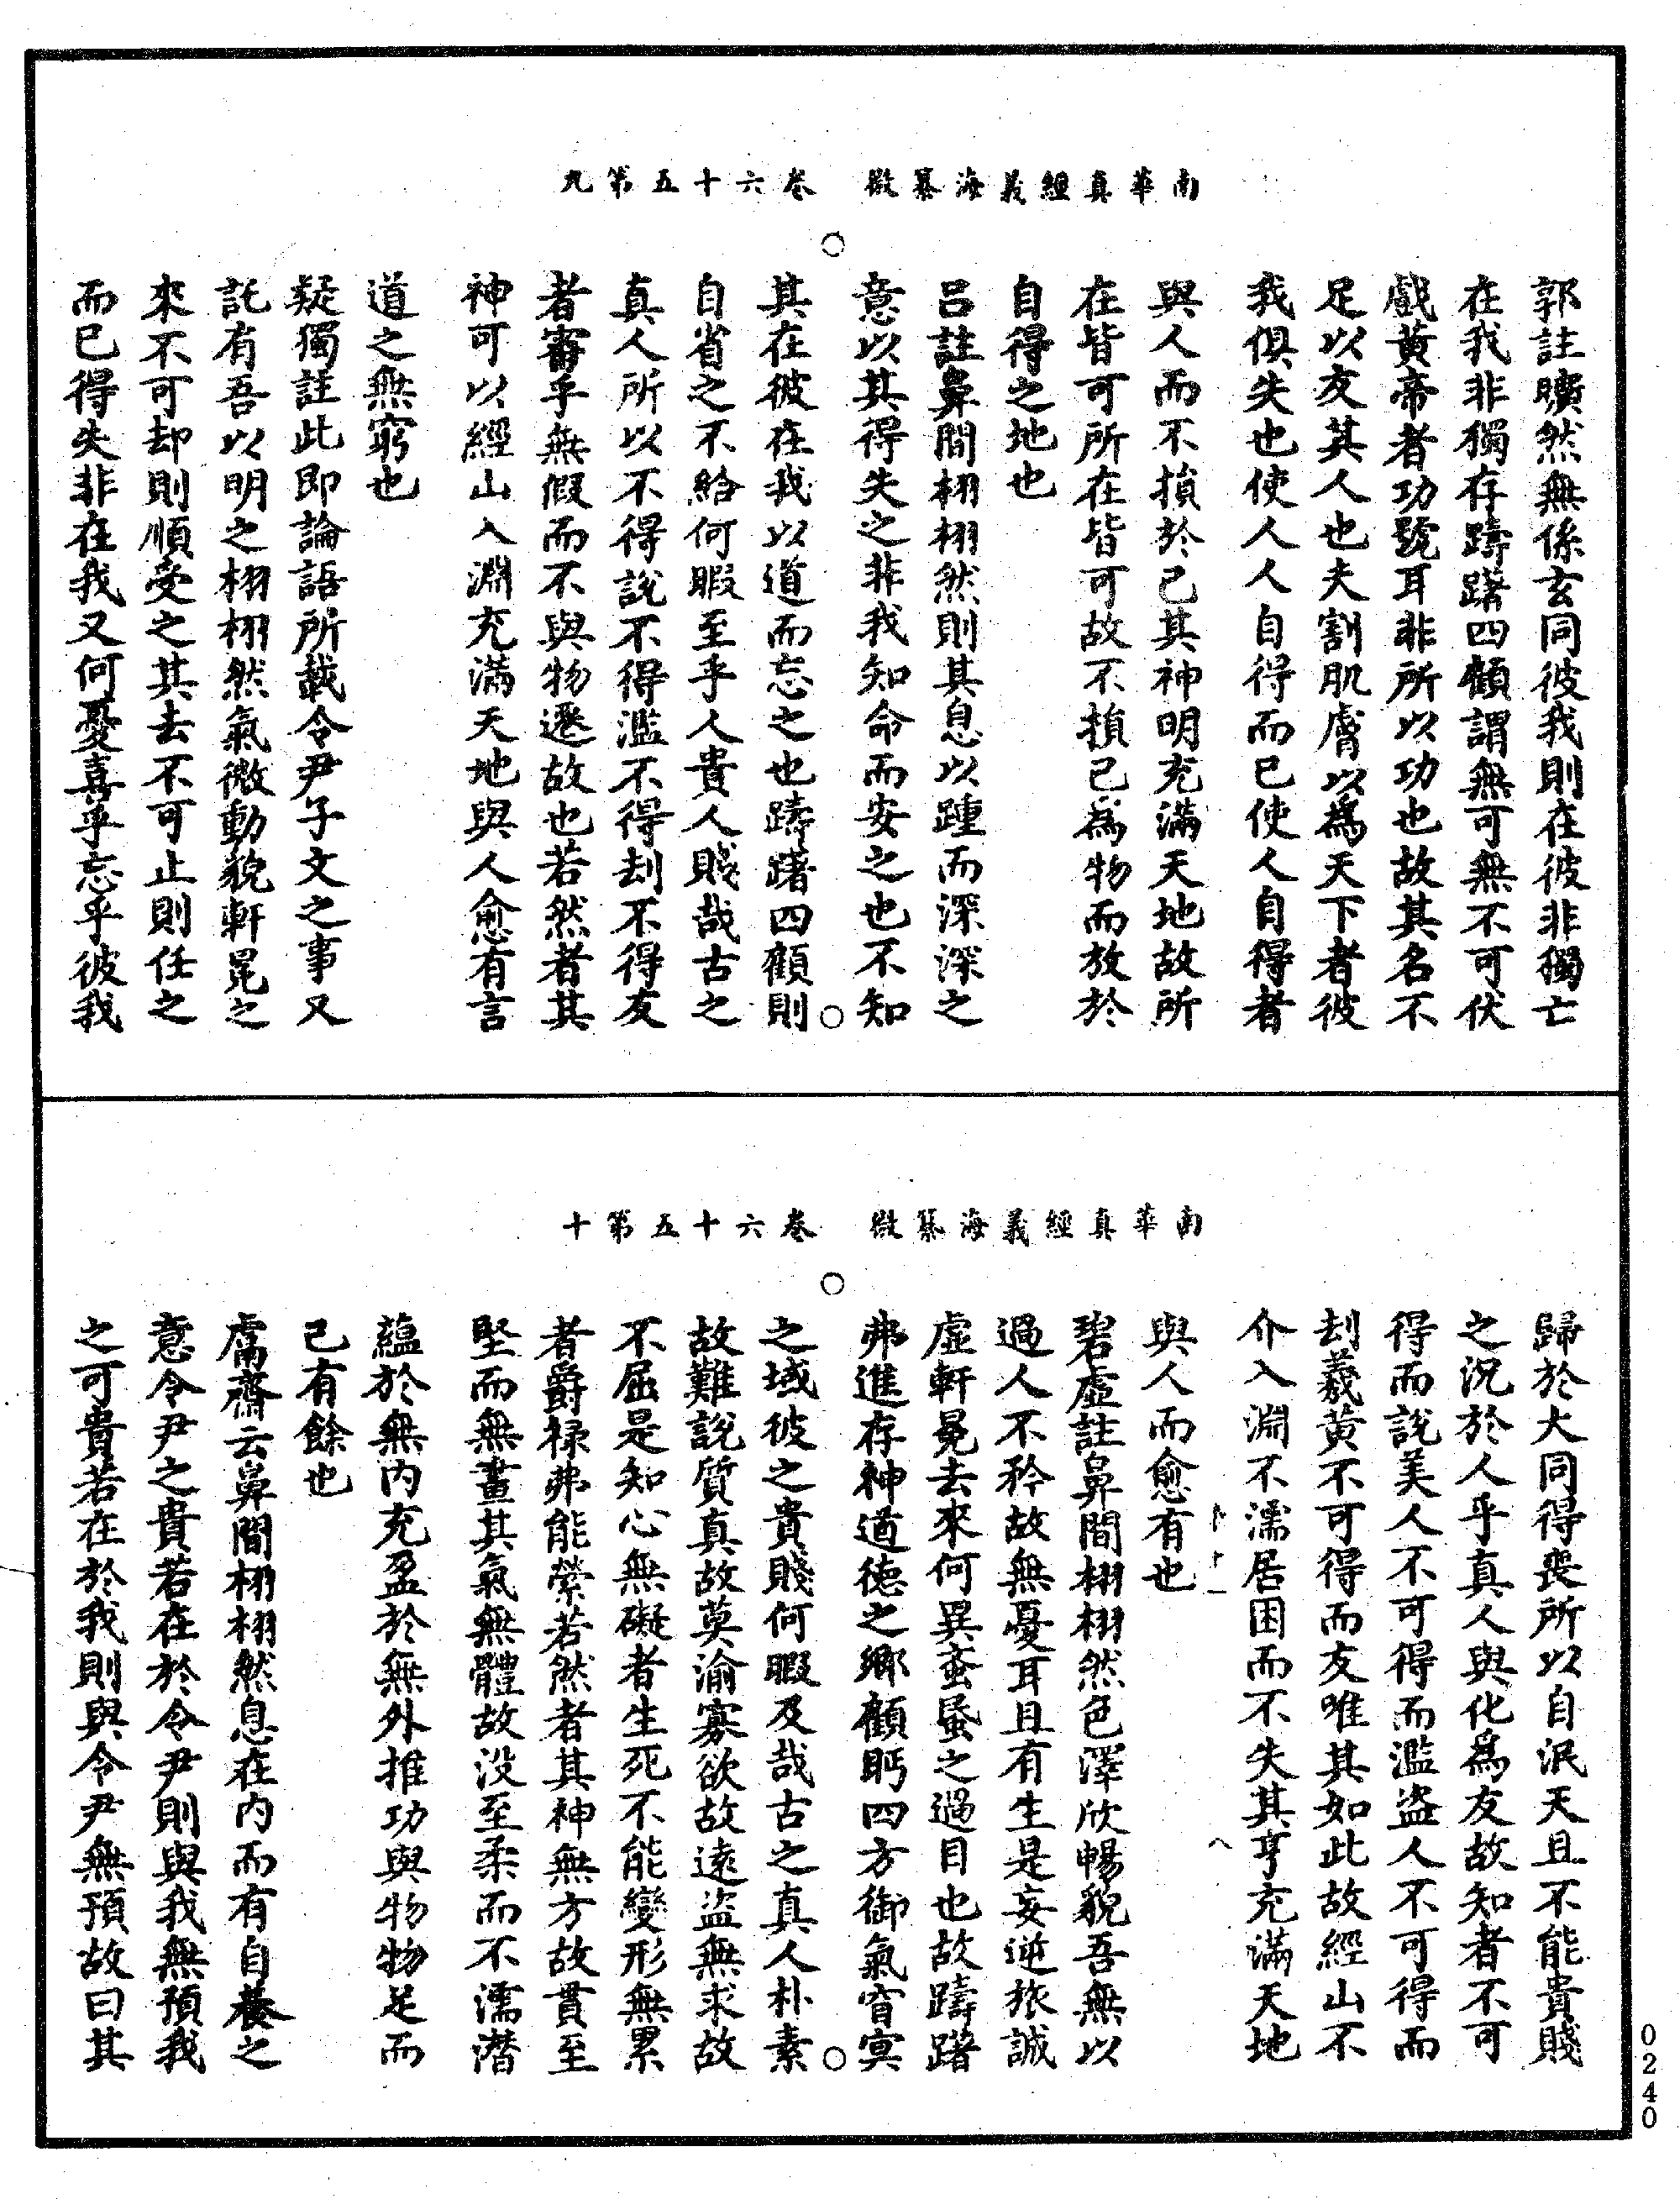 南華真經義海纂微　卷六十五第九
郭註曠然無係玄同彼我則在彼非獨亡
在我非獨存躊躇四顧謂無可無不可伏
戲黃帝者功號耳非所以功也故其名不
足以友其人也夫割肌膚以為天下者彼
我俱失也使人人自得而已使人自得者
與人而不損於己其神明充滿天地故所
在皆可所在皆可故不損己為物而放於
自得之地也
呂註鼻間栩栩然則其息以踵而深深之
意以其得失之非我知命而安之也不知
其在彼在我以道而忘之也躊躇四顧則
自省之不給何暇至乎人貴人賤哉古之
真人所以不得說不得濫不得刦不得友
者審乎無假而不與物遷故也若然者其
神可以經山入淵充滿天地與人愈有言
道之無窮也
疑獨註此即論語所載令尹子文之事又
託有吾以明之栩栩然氣微動貌軒冕之
來不可却則順受之其去不可止則任之
而已得失非在我又何憂喜乎忘乎彼我
南華真經義海纂微　卷六十五第十
歸於大同得喪所以自泯天且不能貴賤
之況於人乎真人與化為友故知者不可
得而說美人不可得而濫盜人不可得而
刦羲黃不可得而友唯其如此故經山不
介入淵不濡居困而不失其亨充滿天地
與人而愈有也
碧虛註鼻間栩栩然色澤欣暢貌吾無以
過人不矜故無憂耳且有生是妄逆旅誠
虛軒冕去來何異蚉蝱之過目也故躊躇
弗進存神道德之鄉顧眄四方御氣窅冥
之域彼之貴賤何暇及哉古之真人朴素
故難說質真故莫渝寡欲故遠盜無求故
不屈是知心無礙者生死不能變形無累
者爵祿弗能縈若然者其神無方故貫至
堅而無畫其氣無體故沒至柔而不濡潛
蘊於無內充盈於無外推功與物物足而
己有餘也
鬳齋云鼻間栩栩然息在內而有自養之
意令尹之貴若在於令尹則與我無預我
之可貴若在於我則與令尹無預故曰其
0240